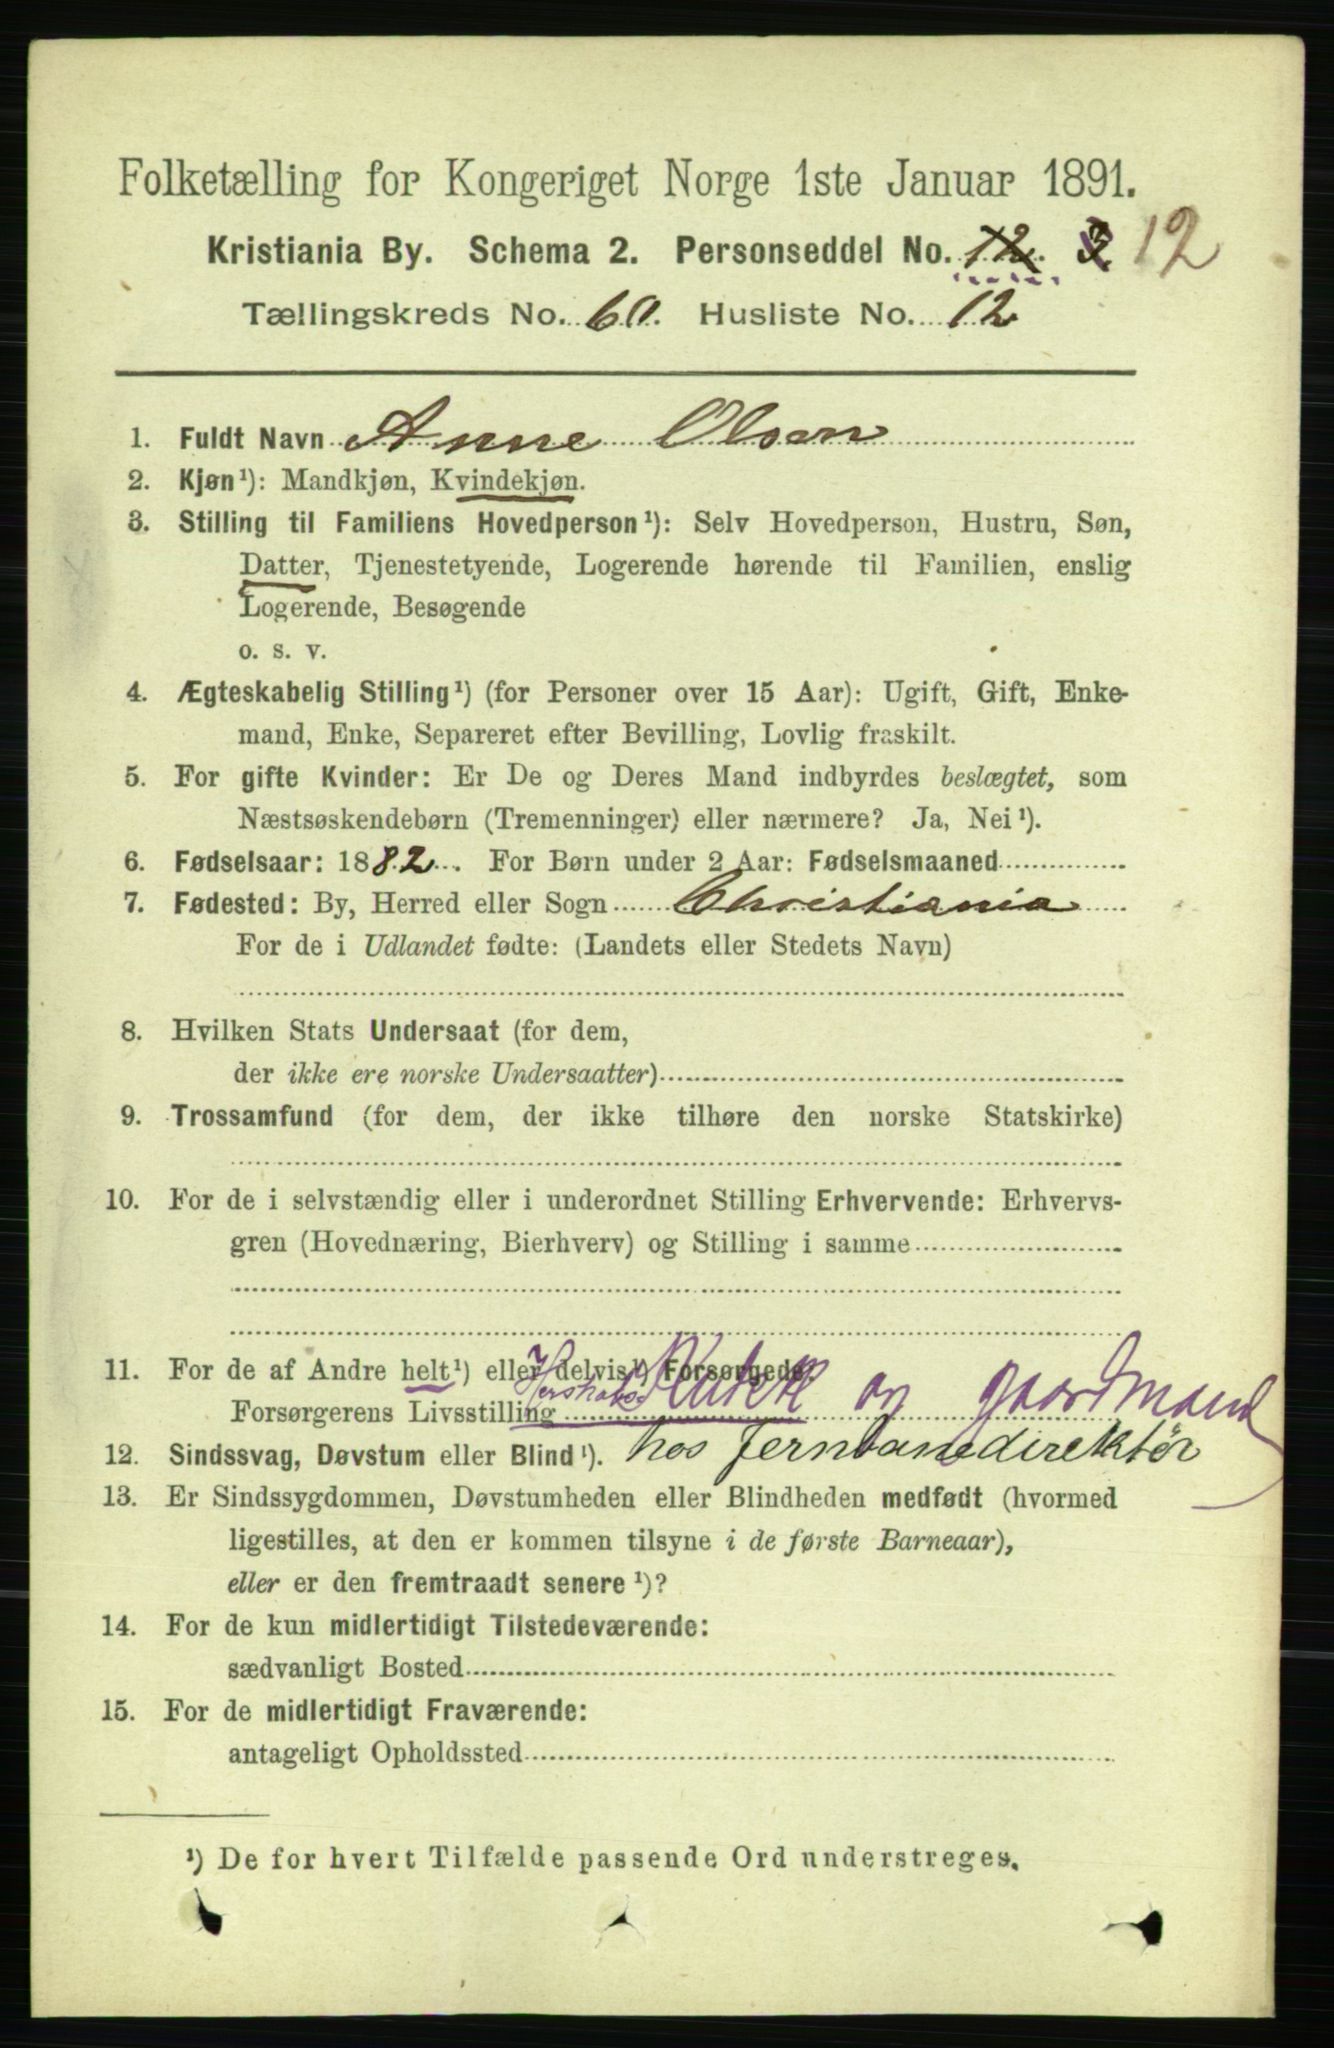 Folketælling for Kongeriget Norge 1ste Januar 1891.
Kristiania By. Schema 2. Personseddel No. 12. 3 12
Tællingskreds No. 60. Husliste No. 12
1. Fuldt Navn Anne Olsen
2. Kjøn¹): Mandkjøn, Kvindekjøn.
3. Stilling til Familiens Hovedperson¹): Selv Hovedperson, Hustru, Søn,
Datter, Tjenestetyende, Logerende hørende til Familien, enslig
Logerende, Besøgende
o. s. v.
4. Ægteskabelig Stilling¹) (for Personer over 15 Aar): Ugift, Gift, Enke-
mand, Enke, Separeret efter Bevilling, Lovlig fraskilt.
5. For gifte Kvinder: Er De og Deres Mand indbyrdes beslægtet, som
Næstsøskendebørn (Tremenninger) eller nærmere? Ja, Nei¹).
6. Fødselsaar: 1882. For Børn under 2 Aar: Fødselsmaaned
7. Fødested: By, Herred eller Sogn Christiania
For de i Udlandet fødte: (Landets eller Stedets Navn)
8. Hvilken Stats Undersaat (for dem,
der ikke ere norske Undersaatter)
9. Trossamfund (for dem, der ikke tilhøre den norske Statskirke)
10. For de i selvstændig eller i underordnet Stilling Erhvervende: Erhvervs-
gren (Hovednæring, Bierhverv) og Stilling i samme
11. For de af Andre helt¹) eller delvis¹) Forsørgede:
Forsørgerens Livsstilling Herskabs Kusk og gaardmand
12. Sindssvag, Døvstum eller Blind¹). hos Jernbanedirektør
13. Er Sindssygdommen, Døvstumheden eller Blindheden medfødt (hvormed
ligestilles, at den er kommen tilsyne i de første Barneaar),
eller er den fremtraadt senere¹)?
14. For de kun midlertidigt Tilstedeværende:
sædvanligt Bosted
15. For de midlertidigt Fraværende:
antageligt Opholdssted
¹) De for hvert Tilfælde passende Ord understreges.